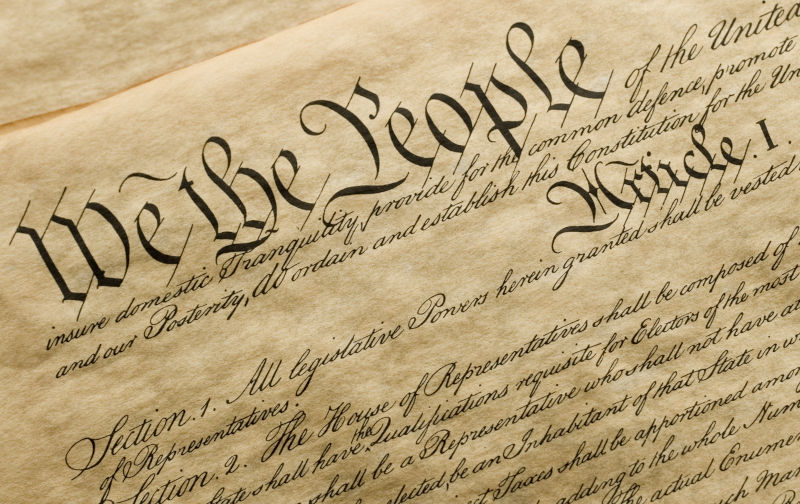 We the People of the United
insure domestic Tranquility, provide for the common defence, promote
and our Posterity, do ordain and establish this Constitution for the Un
Article. I.
Section. 1. All legislative Powers herein granted shall be vested
of Representatives.
Section. 2. The House of Representatives shall be composed of
State shall have the Qualifications requisite for Electors of the most
shall be a Representative who shall not have at
elected, be an Inhabitant of that State in w
Taxes shall be apportioned amon
adding to the whole Num
The actual Enumer